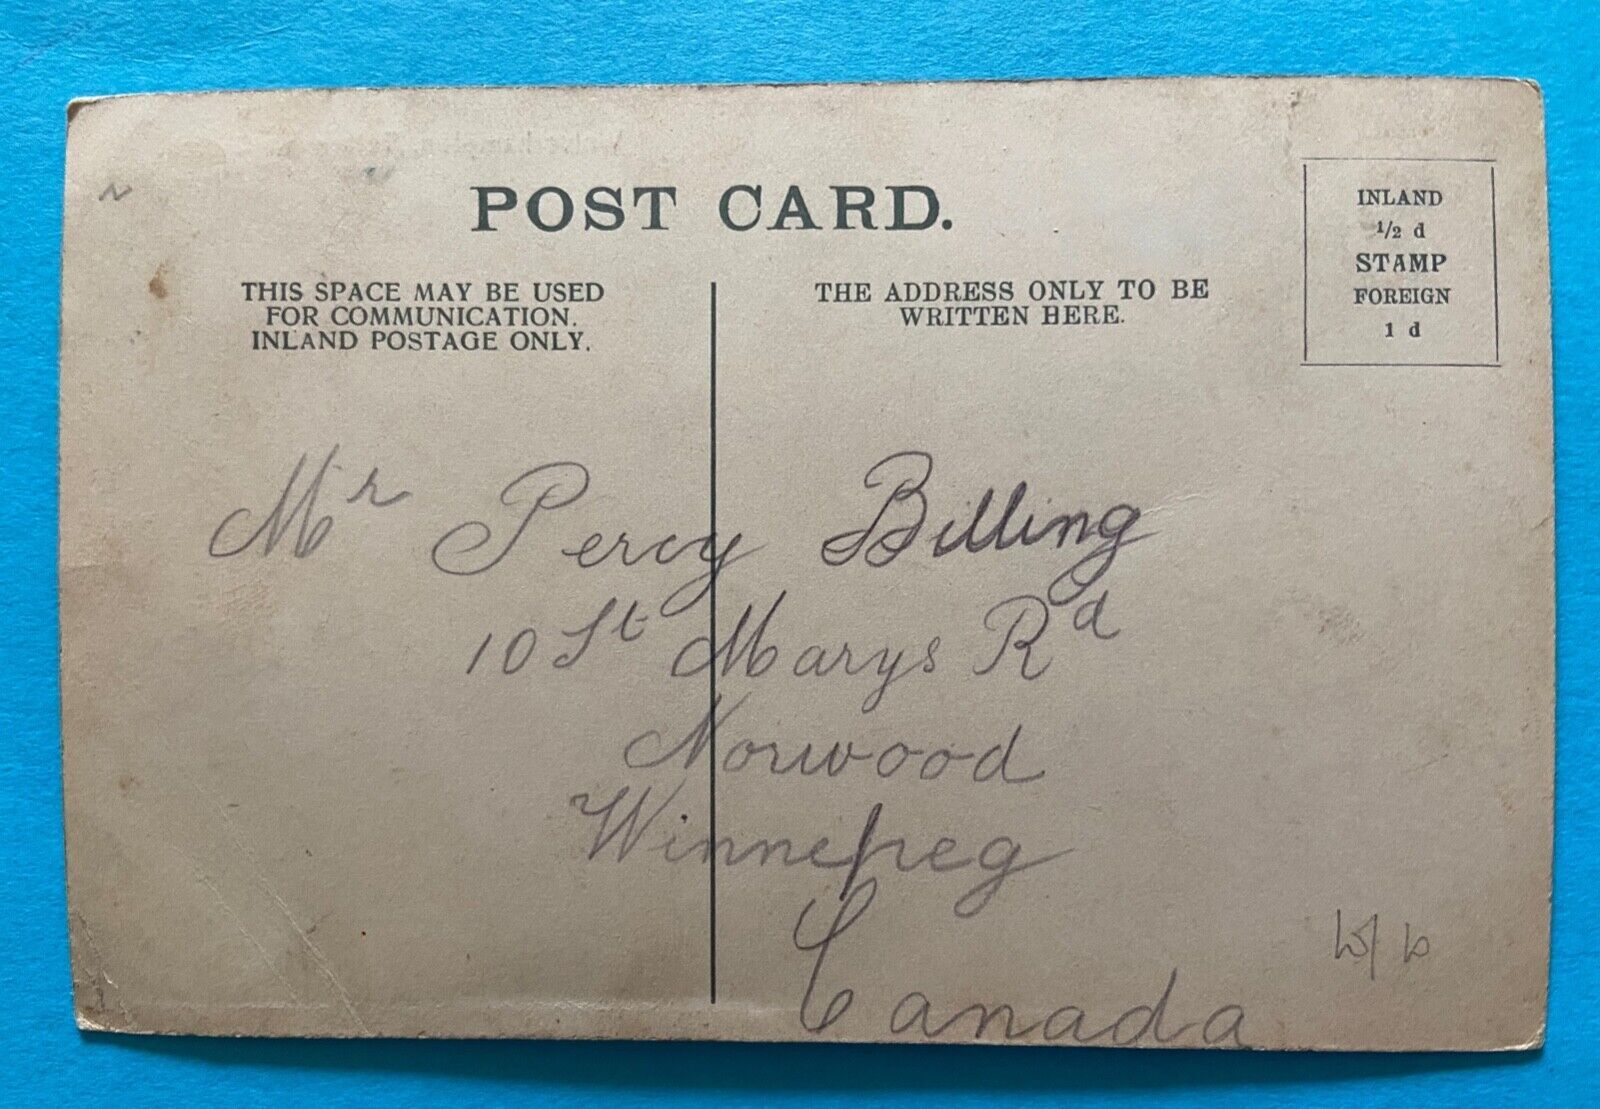 POST CARD.
THIS SPACE MAY BE USED
FOR COMMUNICATION.
INLAND POSTAGE ONLY.
THE ADDRESS ONLY TO BE
WRITTEN HERE.
INLAND
1/2 d
STAMP
FOREIGN
1 d
Mr Percy Billing
10 St Marys Rd
Norwood
Winnepeg
Canada